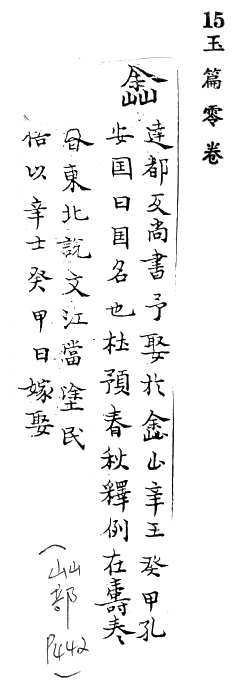 15玉篇零卷
嵞
達都反尚書予娶於嵞山辛壬癸甲孔
安囯曰囯名也杜預春秋釋例在壽春
縣東北說文江當塗民
俗以辛壬癸甲日嫁娶
(屾部P442)